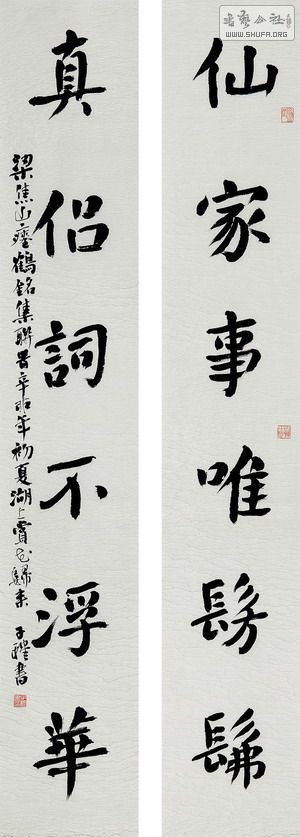 書藝公社
WWW.SHUFA.ORG
仙家事唯髣髴
真侣詞不浮華
梁焦山瘞鶴銘集聯旹辛卯年初夏湖上賞花歸来子書